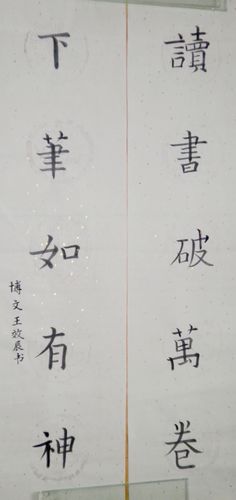 讀書破萬卷
下筆如有神
博文王效辰书